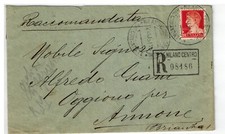 Raccomandata
Nobile Signore
Alfredo Giani
Oggiono per
Annone
(Brianza)
R
MILANO CENTRO